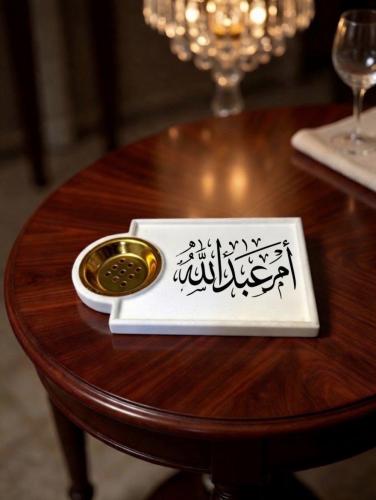 أم عبدالله